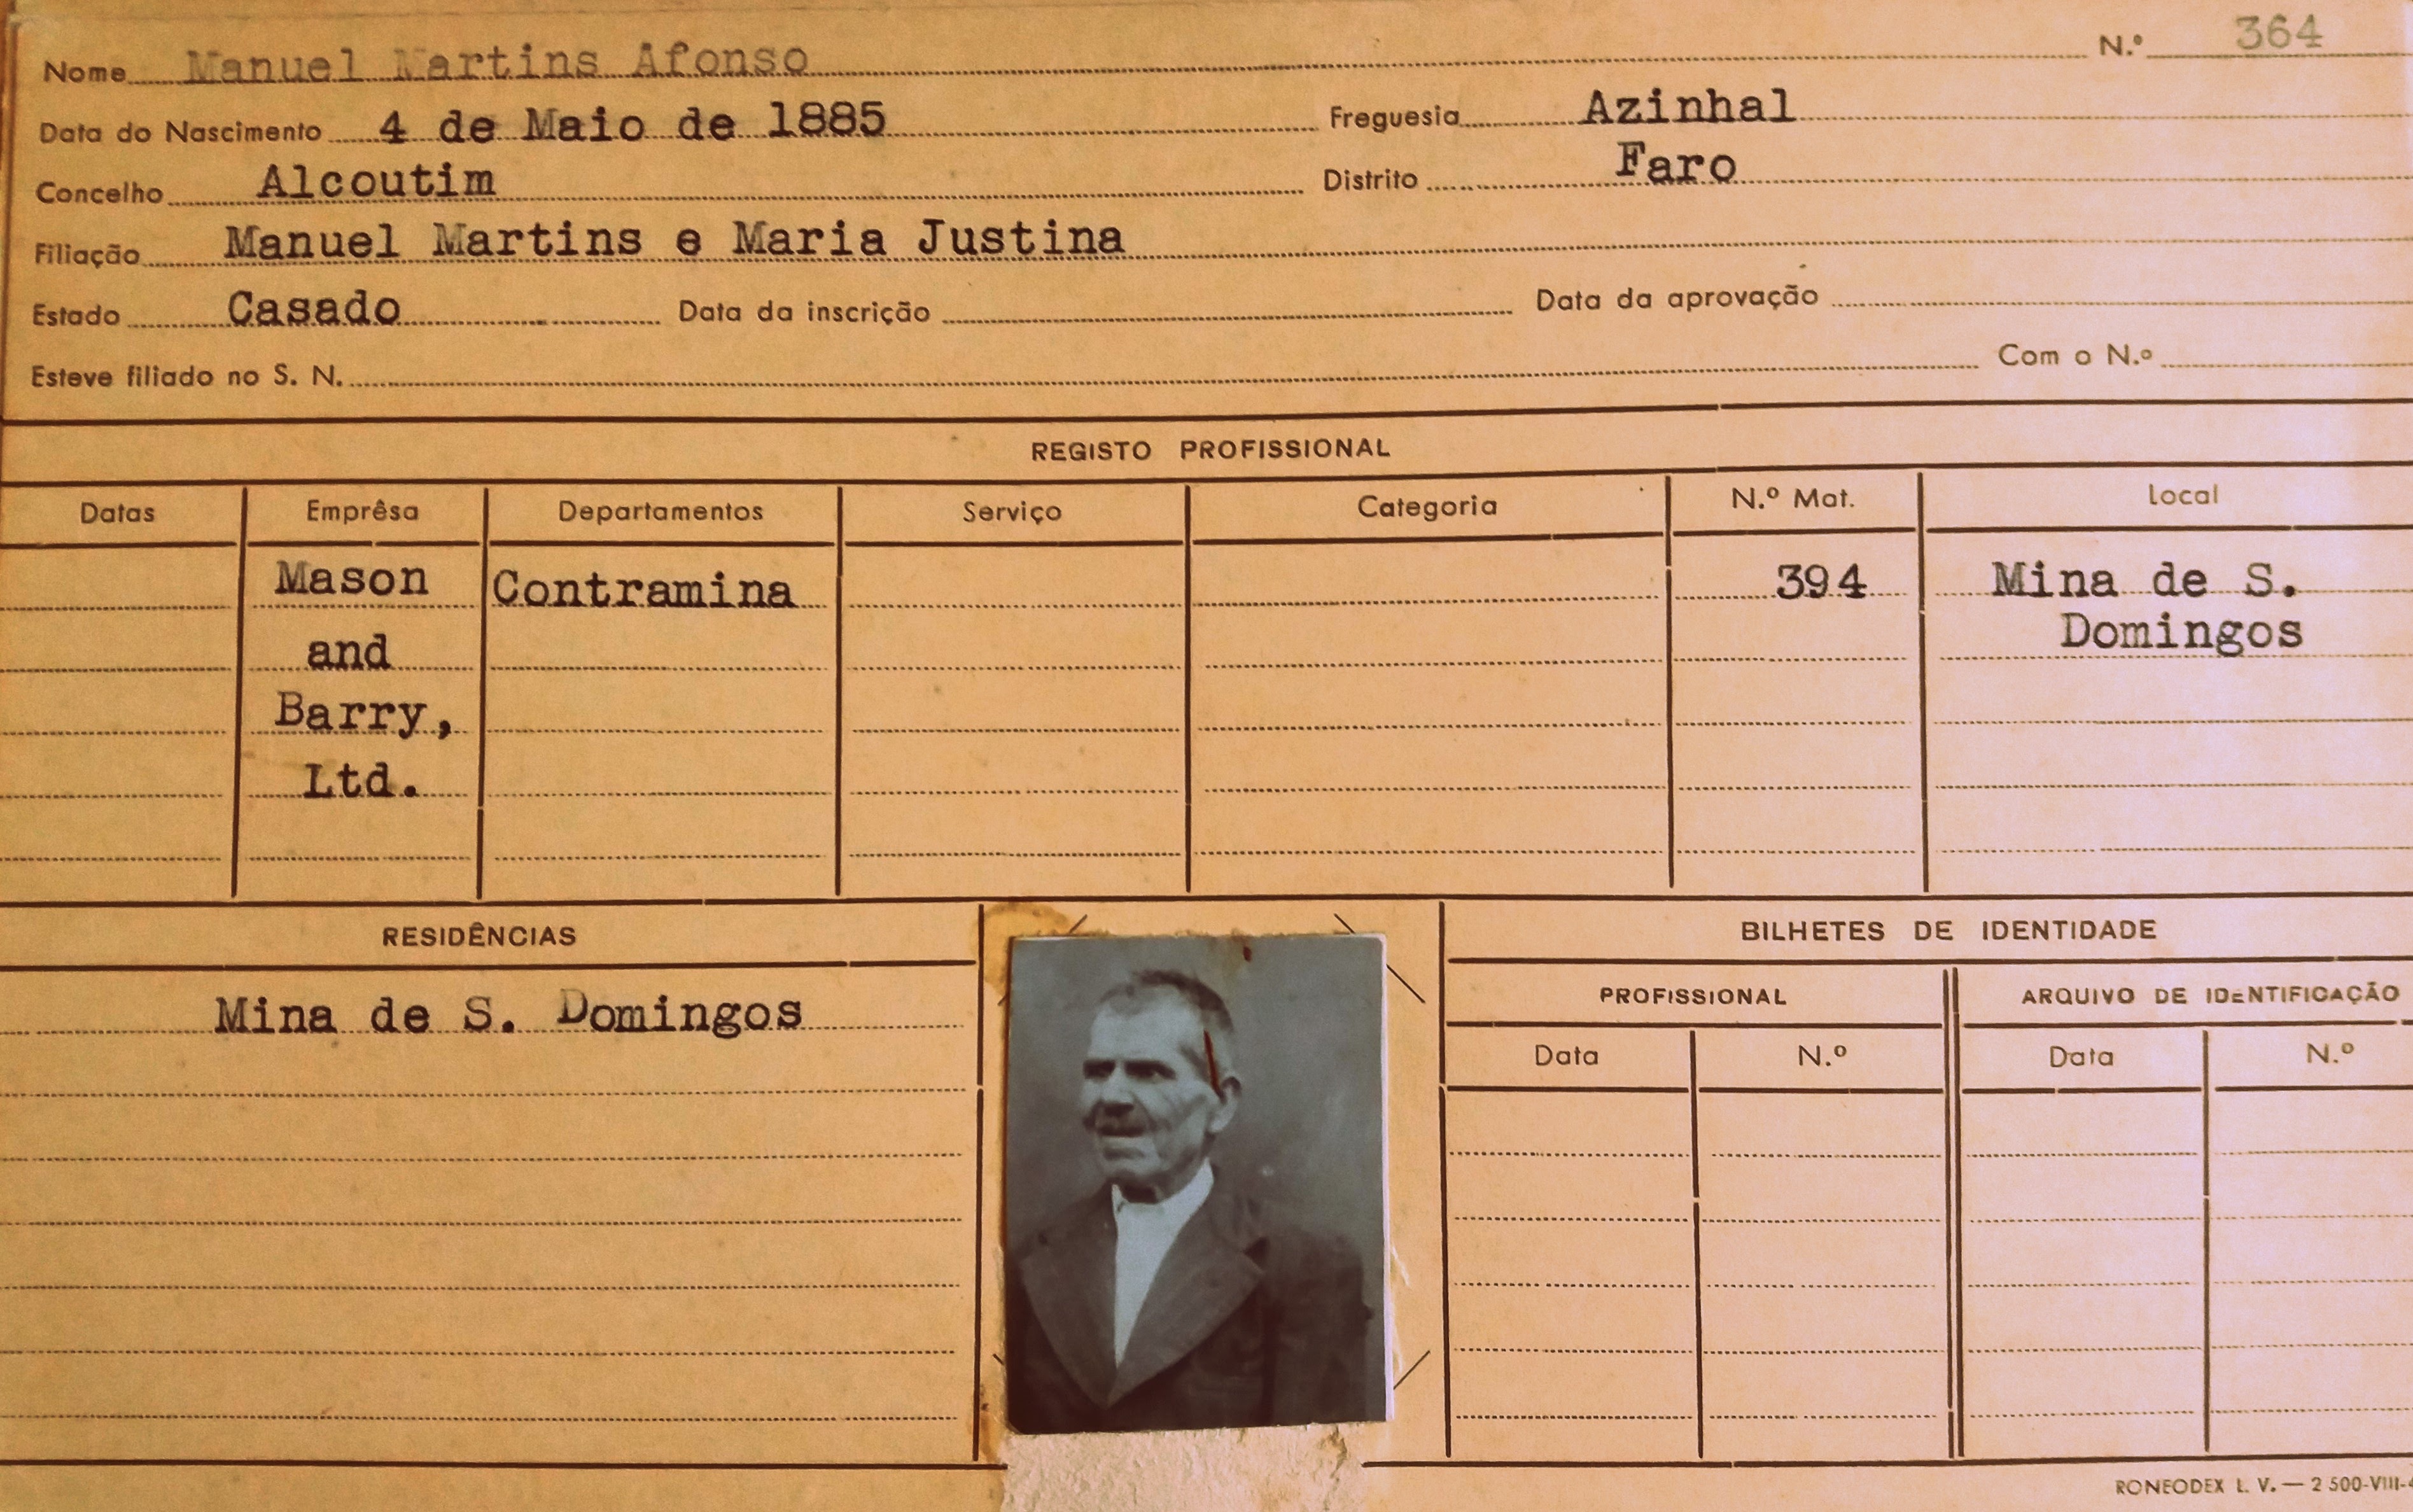 Nome Manuel Martins Afonso N.º 364
Data do Nascimento 4 de Maio de 1885 Freguesia Azinhal
Concelho Alcoutim Distrito Faro
Filiação Manuel Martins e Maria Justina
Estado Casado Data da inscrição Data da aprovação
Esteve filiado no S. N. Com o N.º
REGISTO PROFISSIONAL
Datas Emprêsa Departamentos Serviço Categoria N.º Mat. Local
Mason Contramina 394 Mina de S.
and Domingos
Barry,
Ltd.
RESIDÊNCIAS
Mina de S. Domingos
BILHETES DE IDENTIDADE
PROFISSIONAL ARQUIVO DE IDENTIFICAÇÃO
Data N.º Data N.º
RONEODEX L. V. — 2 500-VIII-